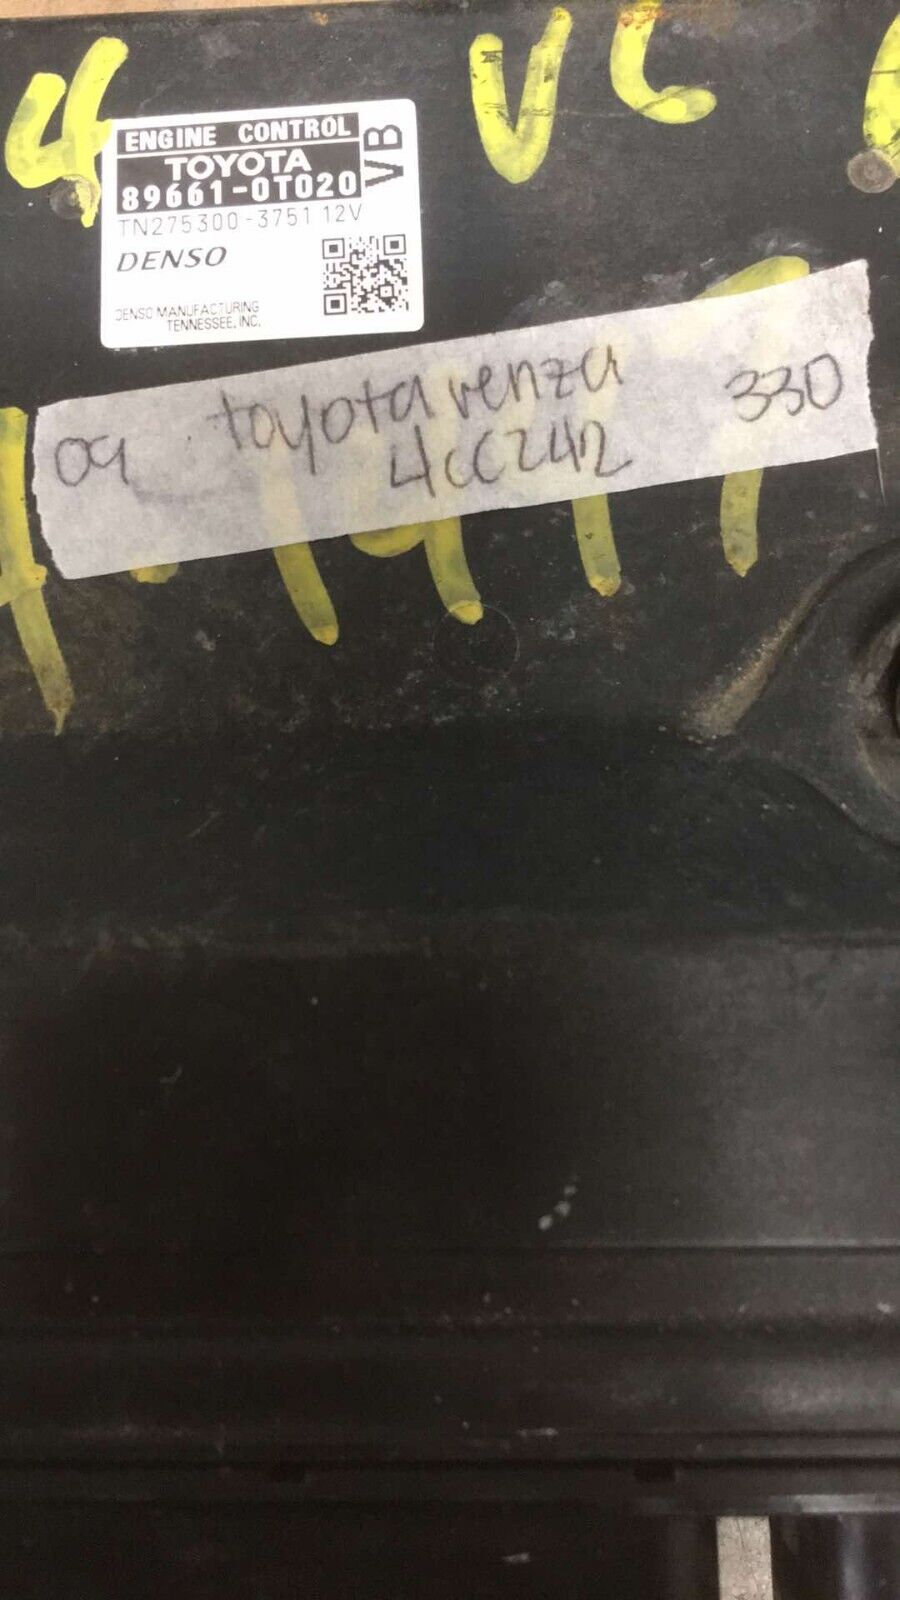 4 VC
ENGINE CONTROL
TOYOTA
89661-0T020
VB
TN275300-3751 12V
DENSO
DENSO MANUFACTURING
TENNESSEE, INC.
09 toyota venza 330
4CC242